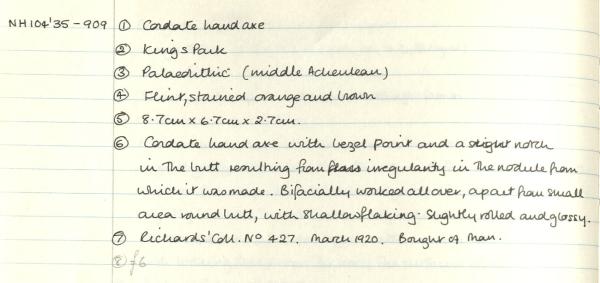 NH104'35-909 ① Cordate hand axe
② Kings Park
③ Palaeolithic (middle Acheulean)
④ Flint, stained orange and brown
⑤ 8.7cm x 6.7cm x 2.7cm.
⑥ Cordate hand axe with bezel point and a slight notch
in the butt resulting from irregularity in the nodule from
which it was made. Bifacially worked all over, apart from small
area round butt, with shallow flaking. Slightly rolled and glossy.
⑦ Richards' Coll. No 427. March 1920. Bought of man.
⑧ £6